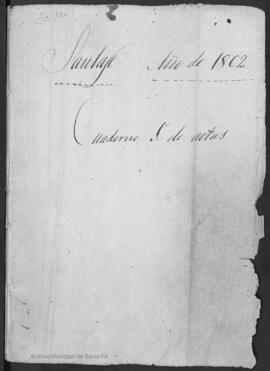 Santafe Año de 1802
Cuaderno de actas
Archivo Municipal de Santa Fe